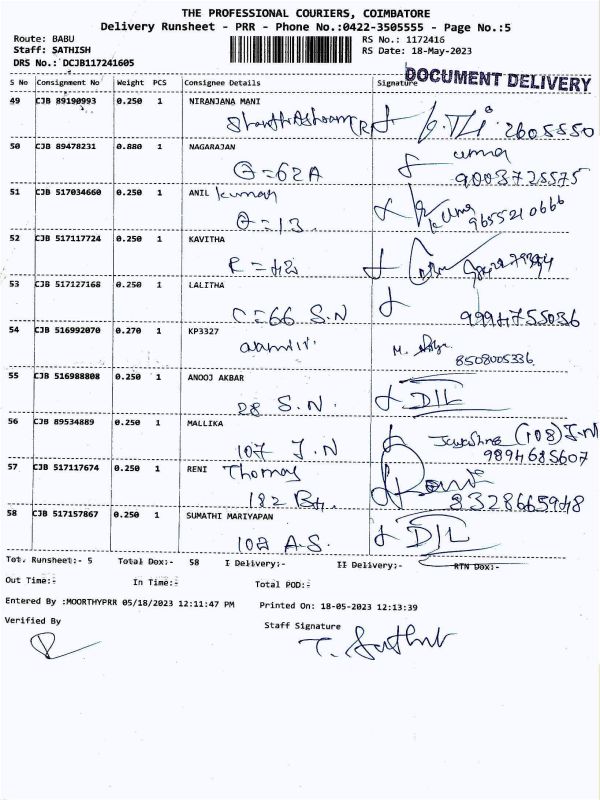 THE PROFESSIONAL COURIERS, COIMBATORE
Delivery Runsheet - PRR - Phone No.:0422-3505555 - Page No.:5
Route: BABU RS No.: 1172416
Staff: SATHISH RS Date: 18-May-2023
DRS No.: DCJB117241605
DOCUMENT DELIVERY
S No Consignment No Weight PCS Consignee Details Signature
49 CJB 89190993 0.250 1 NIRANJANA MANI
2605550
50 CJB 89478231 0.880 1 NAGARAJAN
uma
G=62A 9003725575
51 CJB 517034660 0.250 1 ANIL kumar
G=13 kumar 9655210666
52 CJB 517117724 0.250 1 KAVITHA
R=42
53 CJB 517127168 0.250 1 LALITHA
C=66 S.N 9994755036
54 CJB 516992070 0.270 1 KP3327
M. 8508005336
55 CJB 516988808 0.250 1 ANOOJ AKBAR
28 S.N. D/L
56 CJB 89534889 0.250 1 MALLIKA
(108) J.N
107 J.N 9894685607
57 CJB 517117674 0.250 1 RENI Thomas
182 8328665948
58 CJB 517157867 0.250 1 SUMATHI MARIYAPAN
102 A.S. D/L
Tot. Runsheet:- 5 Total Dox:- 58 I Delivery:- II Delivery:- RTN Dox:-
Out Time:- In Time:- Total POD:-
Entered By :MOORTHYPRR 05/18/2023 12:11:47 PM Printed On: 18-05-2023 12:13:39
Verified By Staff Signature
T. Sathish